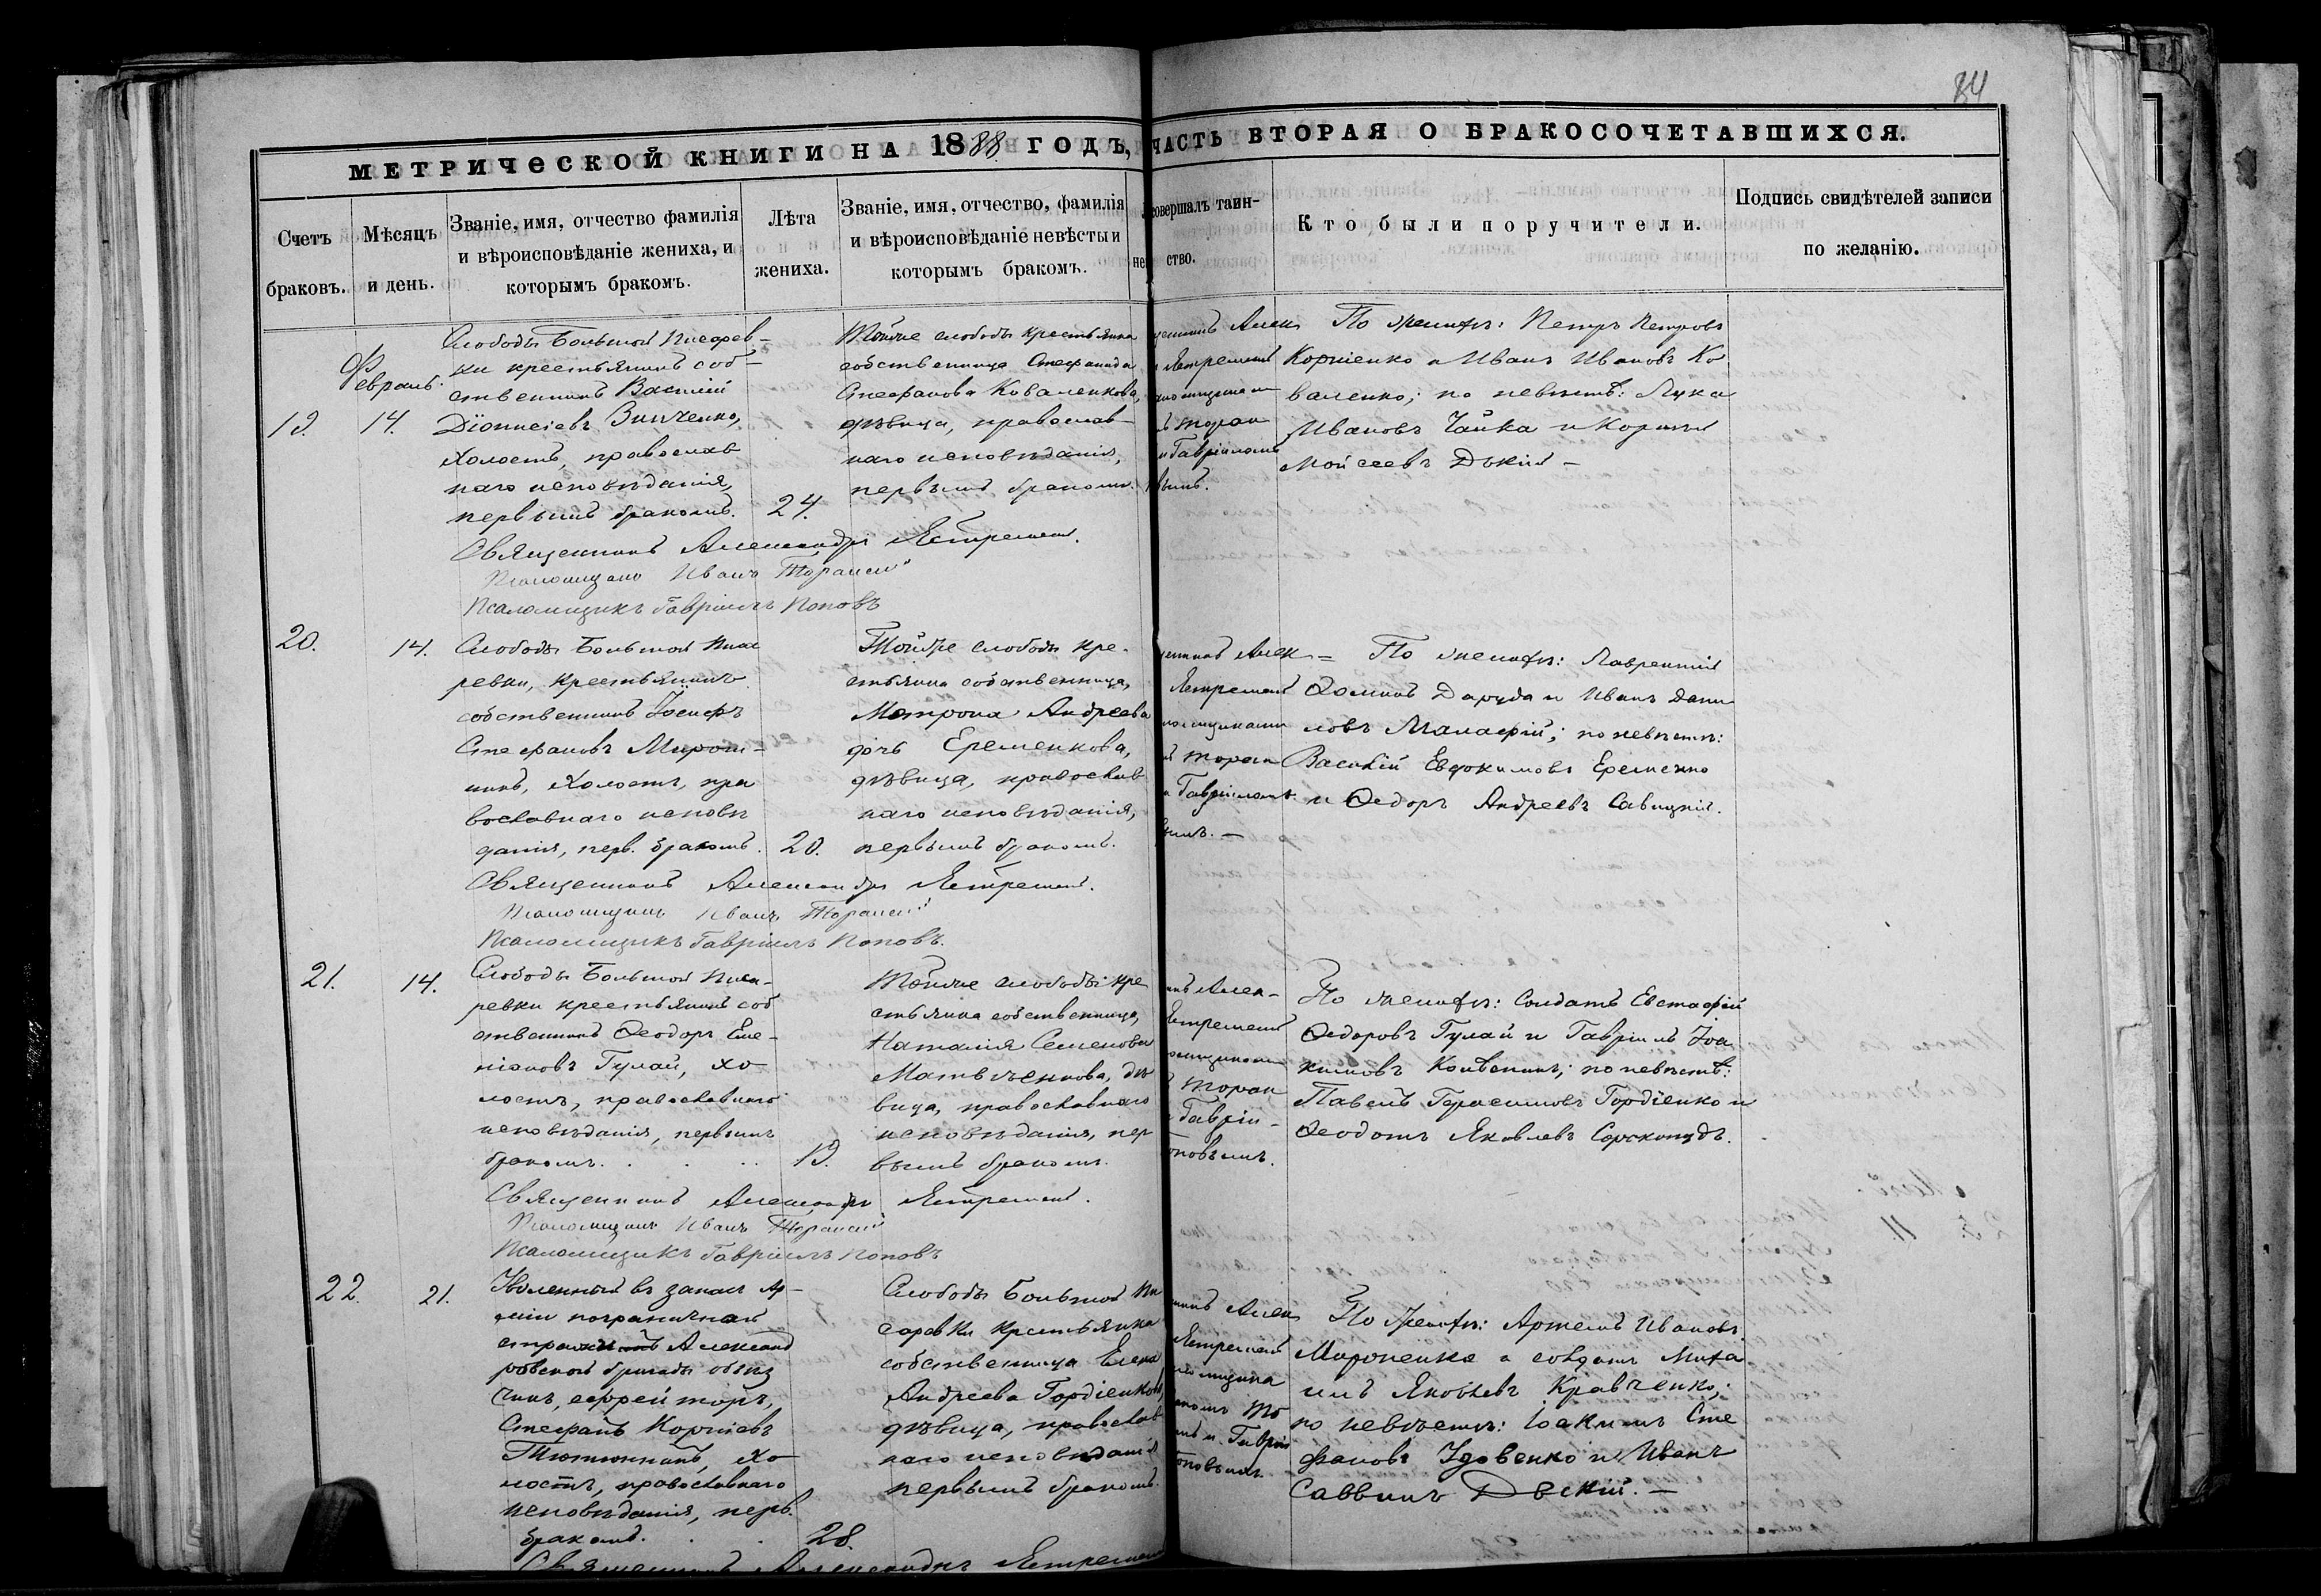 84
МЕТРИЧЕСКОЙ КНИГИ НА 1888 ГОДЪ, ЧАСТЬ ВТОРАЯ О БРАКОСОЧЕТАВШИХСЯ.
Счетъ
браковъ.
Мѣсяцъ
и день.
Званіе, имя, отчество фамилія
и вѣроисповѣданіе жениха, и
которымъ бракомъ.
Лѣта
жениха.
Званіе, имя, отчество, фамилія
и вѣроисповѣданіе невѣсты и
которымъ бракомъ.
не
совершалъ таин-
ство.
Кто были поручители.
Подпись свидѣтелей записи
по желанію.
Февраль.
19.
14.
Слободы Большой Писарев-
ки крестьянинъ соб-
ственникъ Василій
Діонисіевъ Зинченко,
холостъ, православ
наго исповѣданія,
первымъ бракомъ.
24.
Тойже слободы крестьянка
собственница Стефанида
Стефанова Коваленкова,
дѣвица, православ-
наго исповѣданія,
первымъ бракомъ.
Алек
Ястремскій
Торан
и Гавріиломъ
По женихѣ: Петръ Петровъ
Корніенко и Иванъ Ивановъ Ко
валенко; по невѣстѣ: Лука
Ивановъ Чайка и Корнилій
Мойсеевъ Дѣкій –
Священникъ Александръ Ястремскій.
Псаломщикъ Иванъ Торанскій
Псаломщикъ Гавріилъ Поповъ
20.
14.
Слободы Большой Писа
ревки, крестьянинъ
собственникъ Іосифъ
Стефановъ Мирош-
никъ, холостъ, пра
вославнаго исповѣ
данія, перв. бракомъ.
20.
Тойже слободы кре-
стьянка собственница,
Матрона Андреева
дочь Еременкова,
дѣвица, православ
наго исповѣданія,
первымъ бракомъ.
Алек
Ястремскій
Торан
и Гавріиломъ
вымъ. –
= По женихѣ: Лаврентій
Ѳоминъ Даруда и Иванъ Дани
ловъ Малафій; по невѣстѣ:
Василій Евдокимовъ Еременко
и Ѳедоръ Андреевъ Савицкій.
Священникъ Александръ Ястремскій.
Псаломщикъ Иванъ Торанскій
Псаломщикъ Гавріилъ Поповъ.
21.
14.
Слободы Большой Писа-
ревки крестьянинъ соб
ственникъ Ѳеодоръ Еме-
ліановъ Гулай, хо
лостъ, православнаго
исповѣданія, первымъ
бракомъ. . . . .
19.
Тойже слободы кре
стьянка собственница,
Наталія Семенова
Матвѣенкова, дѣ
вица, православнаго
исповѣданія, пер
вымъ бракомъ.
Алек-
Ястремскій
Торан
Гаврі-
оповымъ.
По женихѣ: Солдатъ Евстафій
Ѳедоровъ Гулай и Гавріилъ Іоа
кимовъ ; по невѣстѣ:
Павелъ Герасимовъ Гордіенко и
Ѳеодотъ Яковлевъ Сорокопудъ.
Священникъ Александръ Ястремскій.
Псаломщикъ Иванъ Торанскій
Псаломщикъ Гавріилъ Поповъ
22.
21.
Уволенный въ запасъ ар-
міи пограничной
стражи Александ
ровской бригады объѣз
чикъ, ефрейторъ,
Стефанъ Корніевъ
Тютюнникъ, хо
лостъ, православнаго
исповѣданія, перв.
бракомъ. . . .
28.
Слободы Большой Пи
саревки крестьянка
собственница Елена
Андреева Гордіенкова,
дѣвица, православ
наго исповѣданія
первымъ бракомъ.
Алек
Ястремскій
То
и Гавріи
оповымъ.
По женихѣ: Артемъ Ивановъ
Мироненко и солдатъ Миха
илъ Яковлевъ Кравченко;
по невѣстѣ: Іоакимъ Сте
фановъ Удовенко и Иванъ
Саввинъ Дѣкій. –
Священникъ Александръ Ястремскій